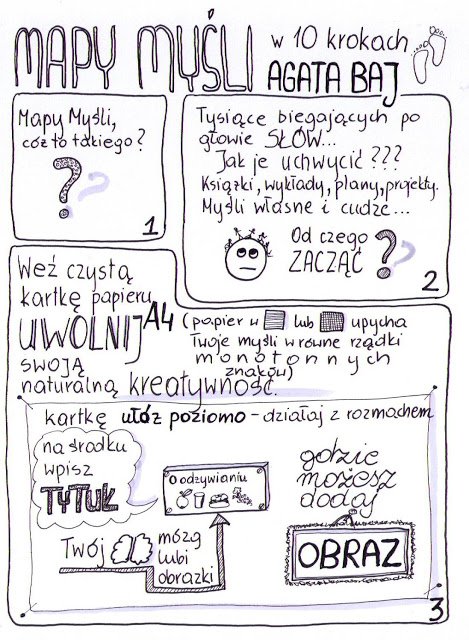 MAPY MYŚLI w 10 krokach
AGATA BAJ
Mapy Myśli,
cóż to takiego?
?
1
Tysiące biegających po
głowie SŁÓW...
Jak je uchwycić???
Książki, wykłady, plany, projekty.
Myśli własne i cudze...
Od czego
ZACZĄĆ ?
2
Weź czystą
kartkę papieru
A4
UWOLNIJ
swoją
naturalną kreatywność.
(papier w lub upycha
Twoje myśli w równe rządki
monotonnych
znaków)
kartkę ułóż poziomo - działaj z rozmachem
na środku
wpisz
TYTUŁ
O odżywianiu
Twój mózg
lubi
obrazki
gdzie
możesz
dodaj
OBRAZ
3